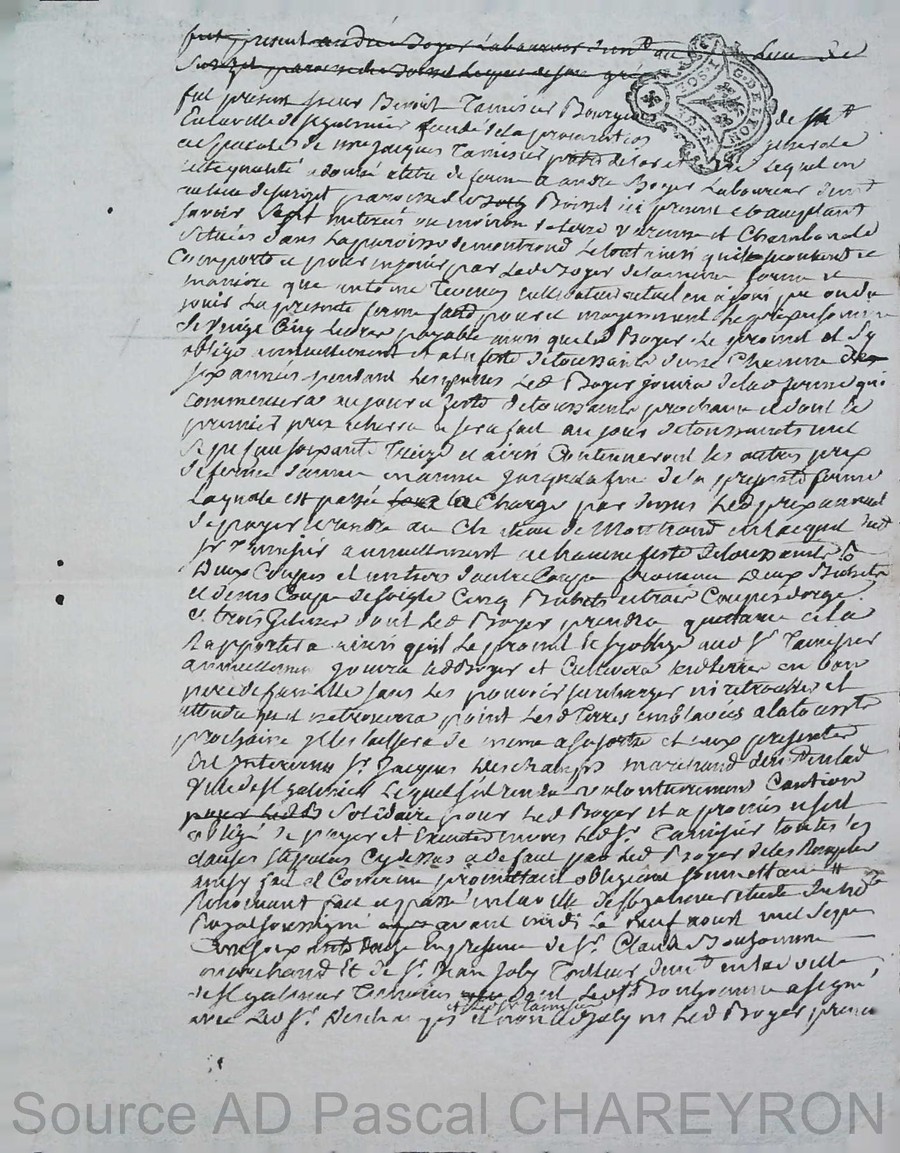 fut present andré Boyer Laboureur dem.t au Lieu de
Surizet paroisse de Boisset
fut present sieur Benoit Tamisier Bourgeois de st
En la ville de st galmier fondé de la procuration generale
et speciale de m.re Jacques Tamisier lequel en
cette qualité a donné a titre de ferme a andré Boyer Laboureur dem.t
au lieu de surizet paroisse de Boisset icy present et acceptant
Savoir sept meterées ou environ de terre varenne et Chambonale
Situées dans La paroisse de montrond Le tout ainsi quil se contient se
Comporte et pour en jouir par Led Boyer de la meme forme et
maniere que antoine cultivateur actuel en a joui pu ou du
jouir La presente ferme faite pour et moyennant le prix et somme
de vingt Cinq Livres payable ainsi que led Boyer Le promet et sy
oblige annuellement et a la feste de toussaints d'une Chacune des
six années pendant Lesquelles Led Boyer jouira de la d ferme qui
commencera au jour et feste de toussaints prochaine et dont le
premier prix echerra et sera fait au jour de toussaints mil
sept cent soixante treize et ainsi Continueront les autres prix
de ferme d'année en année jusqu'a la fin de la presente ferme
Laquelle est passée a la Charge par dessus Led prix annuel
de payer et rendre au Chateau de Montrond en Lacquit dud
Sr Tamisier annuellement a chacune feste de toussaints
Deux Coupes et un tiers d'autre Coupe froment Deux Bichets
et demis Coupe de seigle Cinq Bichets et trois Coupes d'orge
et trois gelines dont Led Boyer prendra quittance et la
Rapportera ainsi quil Le promet et sy oblige aud Sr Tamisier
annuellement jouira led Boyer et Cultivera lesd terres en bon
pere de famille sans Les pouvoir surcharger ni retroubler et
attendu quil ne trouvera point Lesd Terres emblavées a la toussaint
prochaine il les laissera de meme a la sortie et aux presentes
Est Intervenu Sr Jacques Deschamps marchand dem.t en lad
Ville de st galmier Lequel s'est rendu volontairement Caution
payer Led Solidaire pour Led Boyer et a promis et s'est
obligé de payer et Executer envers Led Sr Tamisier toutes les
clauses stipulées Cydessus a defaut par Led Boyer de les Remplir
ainsy fait et Convenu promettant obligeant soumettant
Renonçant fait et passé en la ville de st galmier etude du no.re
Royal soussigné avant midi Le neuf aoust mil sept
Cent soixante douze En presence de Sr Claude Bonhomme
marchand Et de Sr Jean Joly Tailleur dem.t en lad ville
de St galmier Temoins dont Led Sr Bonhomme a signé
et Led Sr Tamisier
avec Led Sr Deschamps et non led Joly ni Led Boyer
G. DE LYON
2. SOLS
Source AD Pascal CHAREYRON